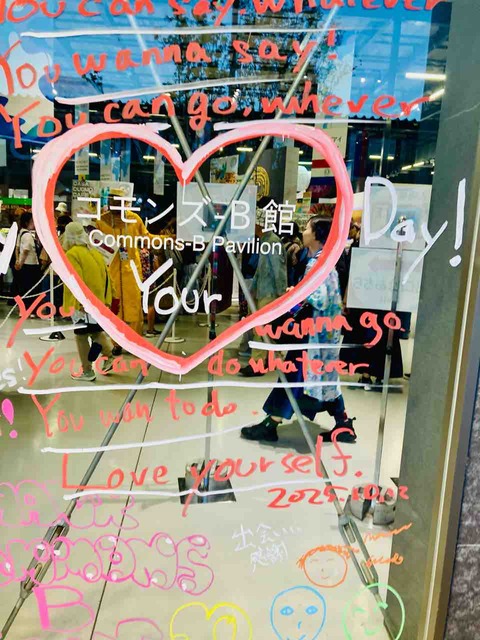 You can say, whatever
You wanna say!
You can go, wherever
コモンズ-B 館
Commons-B Pavilion
Day!
Your
you wanna go
You can do whatever
You wan to do.
Love yourself.
出会い
感謝